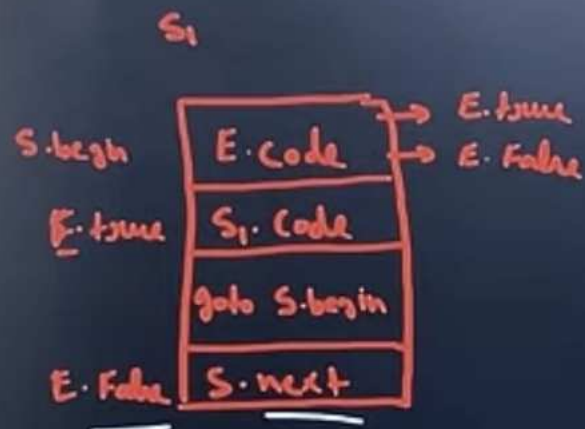 S₁
E.true
S.begin E.code E.False
E.true S₁.Code
goto S.begin
E.False S.next